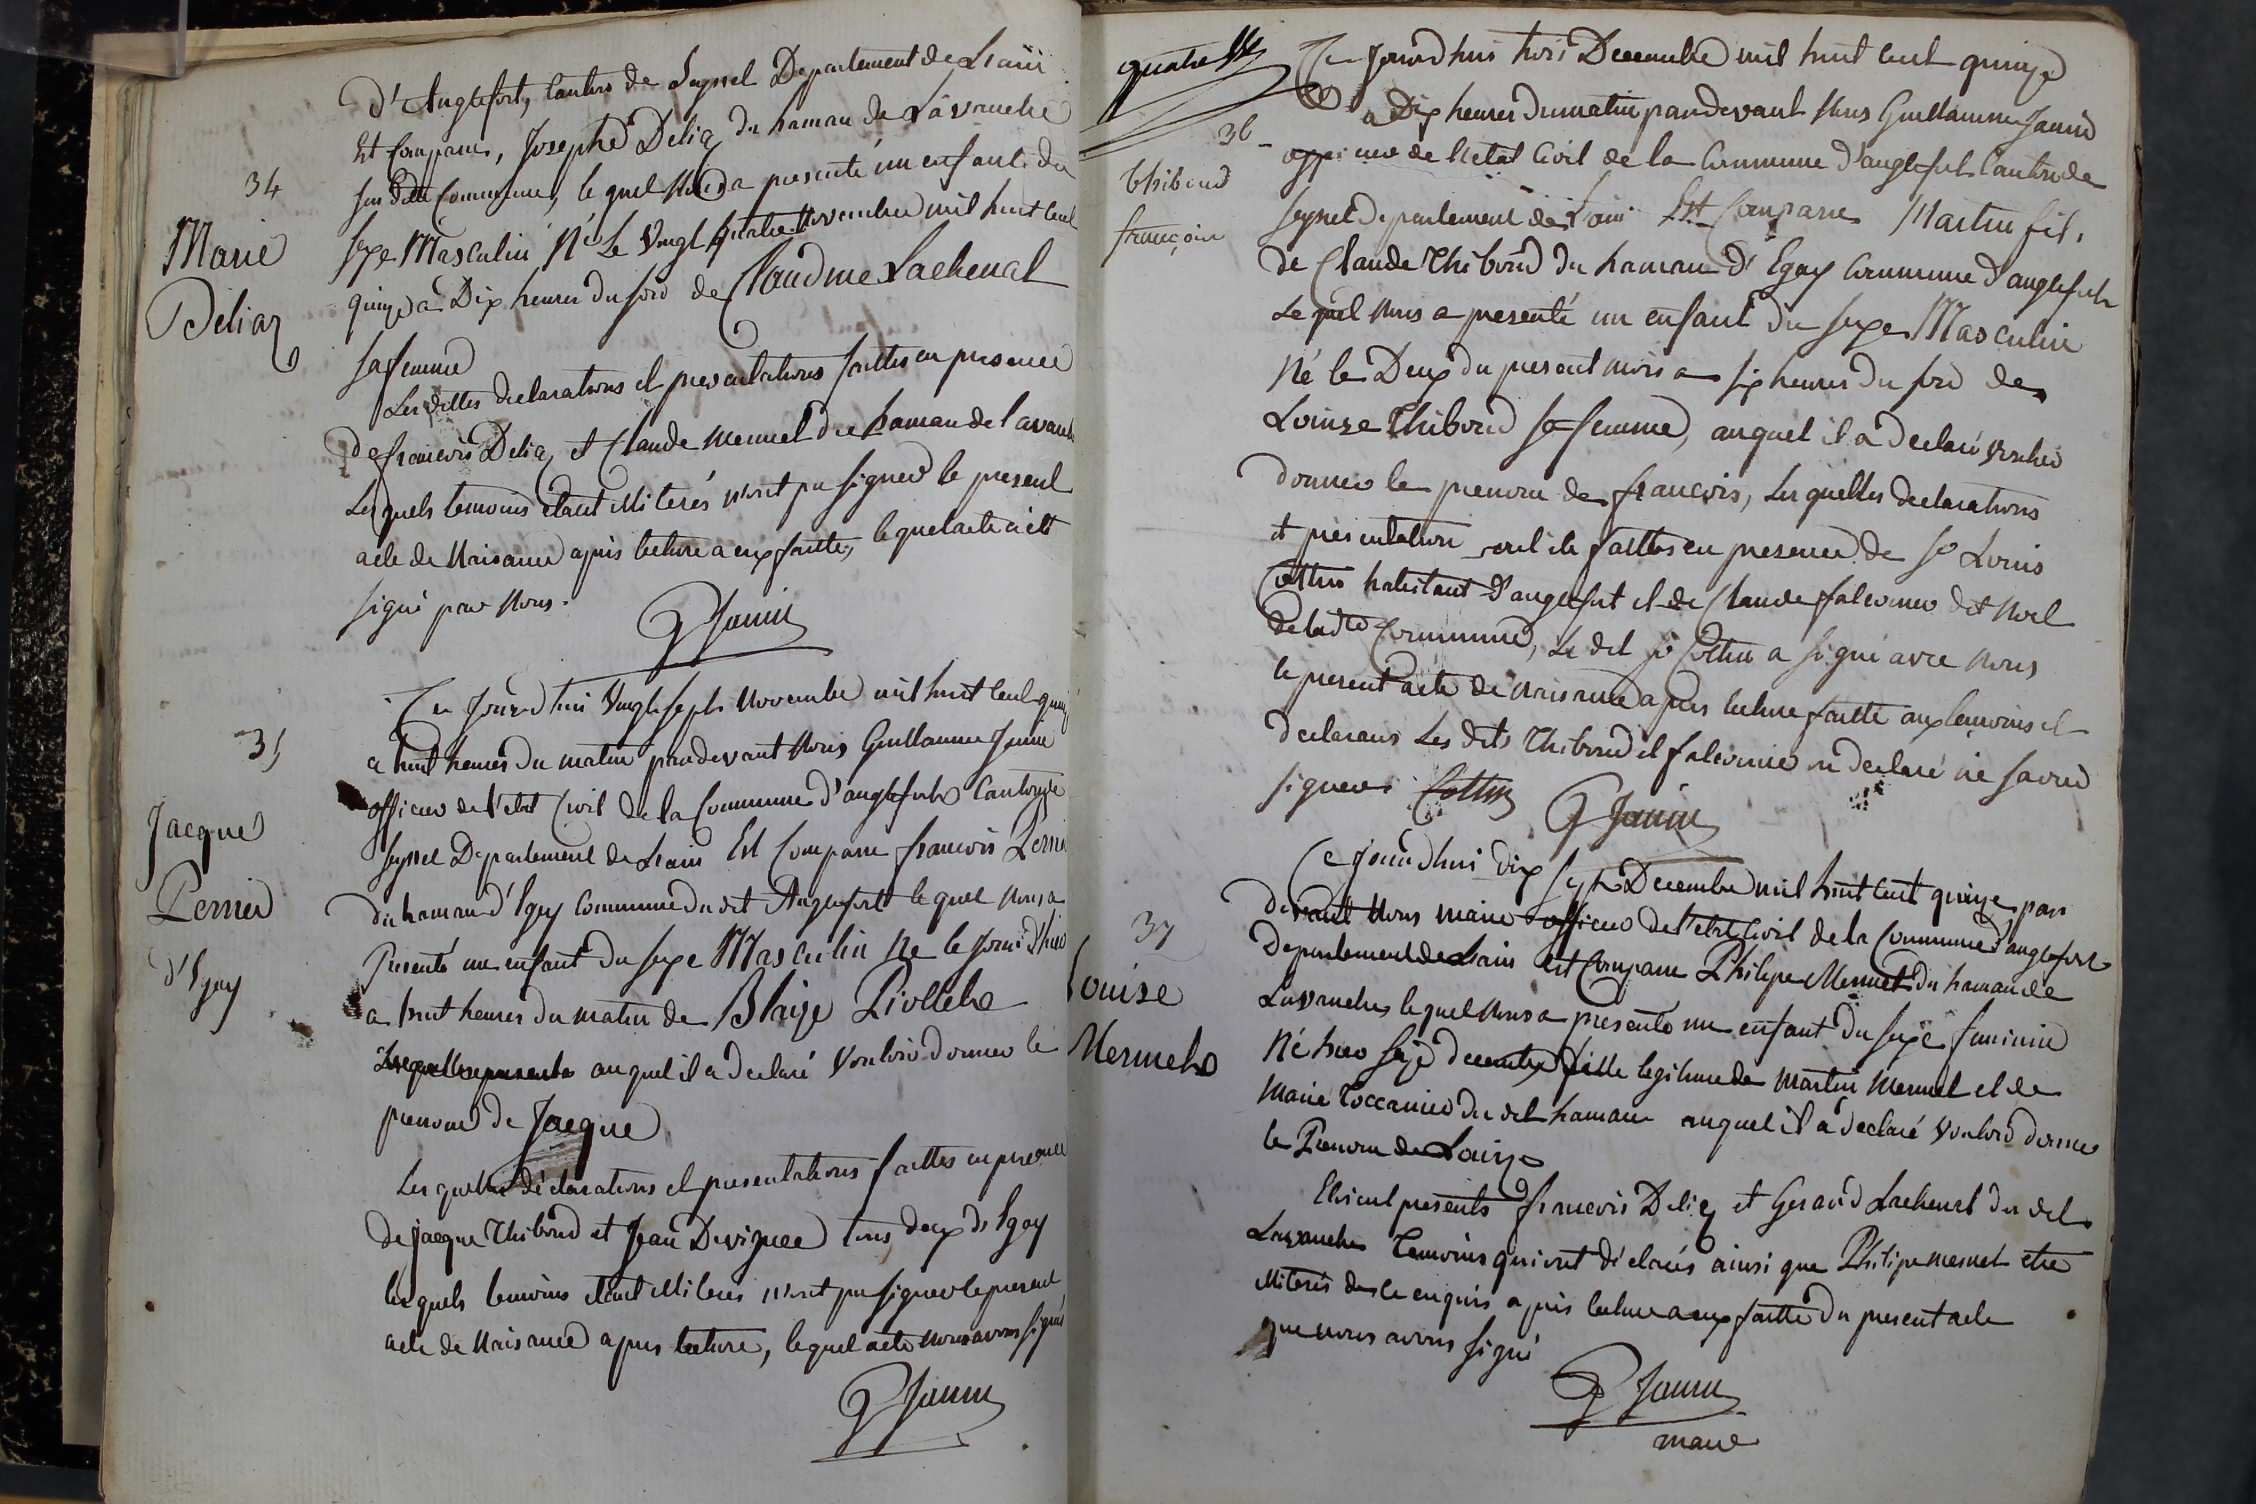 d'Anglefort, Canton de Seyssel Departement de Lain
Est Comparu, Josephe Deliaz du hamau de Lavanche
sus ditte Commune, le quel Nous a presenté un enfant du
sexe Masculin Né Le Vingt quatre Novembre mil huit Cent
quinze à Dix heures du soir de Claudine Lachenal
sa femme
Les dittes declarations et presentations faittes en presence
de francois Deliaz et Claude Mermet du hamau de Lavanche
Lesquels temoins étant Miterés n'ont pu signer le present
acte de Naisance apris lecture a eux faitte, lequel acte a été
signé par Nous.
G Janin
34
Marie
Deliaz
Ce Jourd'hui Vingt sept Novembre mil huit Cent quinze
a huit heures du matin pardevant Nous Guillaume Janin
officier de l'etat Civil de la Commune d'anglefort Canton de
seyssel Departement de Lain Est Comparu francois Pernier
du hamau d'Igay Commune du dit Anglefort le quel Nous a
Presenté un enfant du sexe Masculin Né le Jour d'hier
a huit heures du matin de Blaize Piollet
auquel il a declaré Vouloir donner le
prenom de Jacque
Les quelles déclarations et presentations faittes en presence
de jacque Thiboud et Jean tous deux d'Igay
les quels temoins étant Miterés n'ont pu signer le present
acte de Naisance apris lecture, lequel acte nous avons signé
G Janin
35
Jacque
Pernier
d'Igay
quatre
Ce Jourd'hui trois Decembre mil huit Cent quinze
a Dix heures du matin pardevant Nous Guillaume Janin
officier de l'etat Civil de la Commune d'anglefort Canton de
seyssel departement de Lain Est Comparu Martin fils
de Claude Thiboud du hamau d'Egay Commune d'anglefort
Le quel Nous a presenté un enfant du sexe Masculin
Né le Deux du present mois a six heures du soir de
Louise Thiboud sa femme, auquel il a declaré Vouloir
donner le prenom de francois, Les quelles declarations
et presentation ont été faittes en presence de sr Louis
Cottin habitant d'anglefort et de Claude falconnier dit Noel
de ladte Commune, Le dit sr Cottin a signé avec Nous
le present acte de Naisance apris lecture faitte aux temoins et
declarans Les dits Thiboud et falconnier on declaré ne savoir
signer. Cottin G Janin
36
thiboud
françois
Ce jourd'hui dix sept Decembre mil huit Cent quinze par
devant Nous maire officier de l'etat Civil de la Commune d'anglefort
Departement de Lain est Comparu Philipe Mermet du hamau de
Lavanches lequel Nous a presenté un enfant du sexe feminin
Né hier seize decembre fille legitime de Martin Mermet et de
Marie Toccanier du dit hamau auquel il a declaré Vouloir donner
le Prenom de Louize
Etoient presents francois Deliaz et Geraud Lachenal du dit
Lavanches Temoins qui ont déclarés ainsi que Philipe mermet etre
Miterés de ce enquis apris lecture a eux faitte du present acte
que nous avons signé
G Janin
maire
37
Louise
Mermet